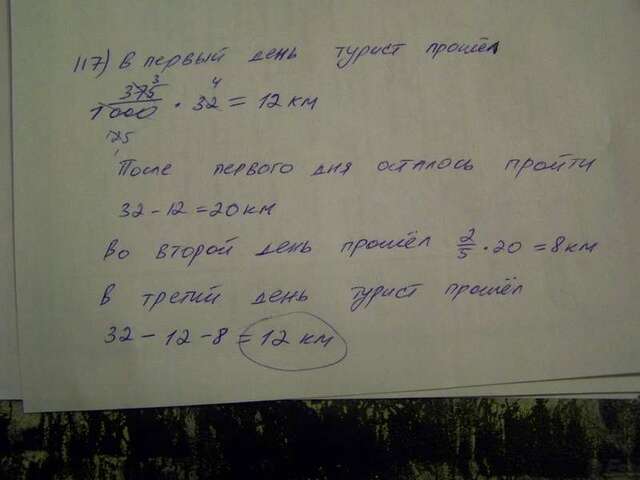 117) В первый день турист прошёл
375/1000 · 32 = 12 км
3 4
125
1
После первого дня осталось пройти
32 - 12 = 20 км
Во второй день прошёл 2/5 · 20 = 8 км
В третий день турист прошёл
32 - 12 - 8 = 12 км